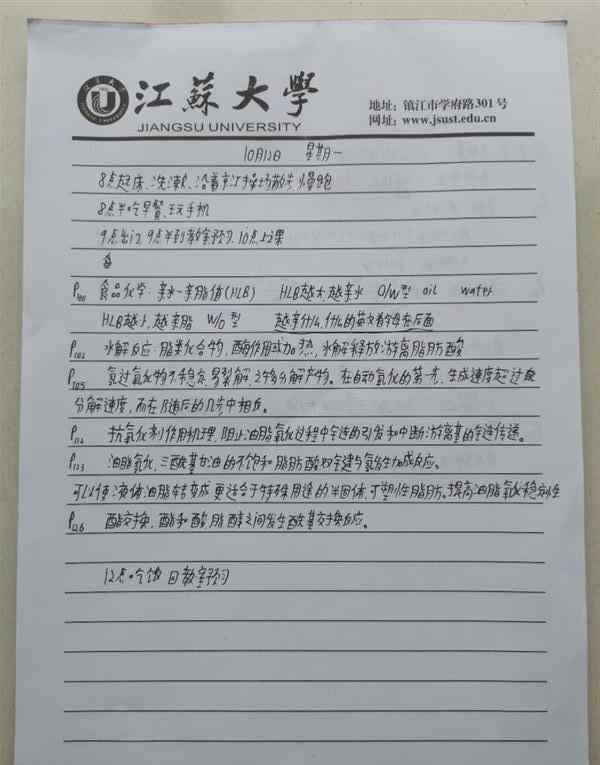 江蘇大學
JIANGSU UNIVERSITY
地址：镇江市学府路301号
网址：www.jsust.edu.cn
10月12日 星期一
8点起床、洗漱、沿着 操场散步、慢跑
8点半吃早餐、玩手机
9点出门，9点半到教室预习，10点上课
P100 食品化学：亲水-亲脂值(HLB) HLB越大，越亲水 O/W型 oil water
HLB越小，越亲脂 W/O型 越亲什么，什么的英文首字母在后面
P102 水解反应：脂类化合物，酶作用或加热，水解释放游离脂肪酸
P105 氢过氧化物不稳定，易裂解，分解产物。在自动氧化的第一步，生成速度超过
分解速度，而在随后的几步中相反。
P114 抗氧化剂作用机理，阻止油脂氧化过程中 的引发和中断游离基的 传递。
P123 油脂氢化，三酰基甘油的不饱和脂肪酸双键与氢发生加成反应。
可以使液体油脂转变成更适合于特殊用途的半固体，可塑性脂肪。提高油脂氧化稳定性
P126 酯交换，酯和酸，脂醇之间发生酰基交换反应。
12点吃饭 回教室预习